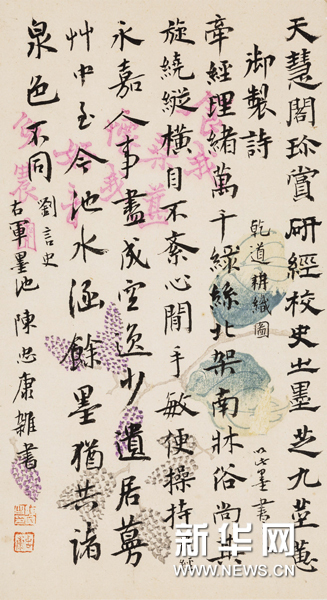 天慧閣珍賞研經校史之墨芝九莖蕙
御製詩
乾道耕織圖
牽經理緒萬千綠絲北架南牀俗尚其
旋繞縱橫目不紊心閒手敏便操持
永嘉人事盡成空逸少遺居蔓
艸中至今池水涵餘墨猶共諸
泉色不同
劉言史
右軍墨池 陳忠康雜書
新华网
WWW.NEWS.CN